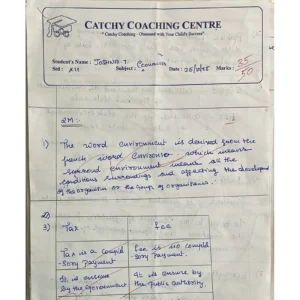 CATCHY COACHING CENTRE
"Catchy Coaching - Obsessed with Your Child's Success"
Student's Name : Joshna .T.
Std : XII Subject : Economics Date : 26/10/25 Marks : 35/50
2M:
1) The word environment is derived from the
french word Environer which means
surround environment means all the
conditions surroundings and affecting the development
of the organism or the group of organisms.
2)
3) Tax Fee
Tax is a compul Fee is no compul
-sory payment -sory payment.
It is It is ensure by
by the Government the public authority.